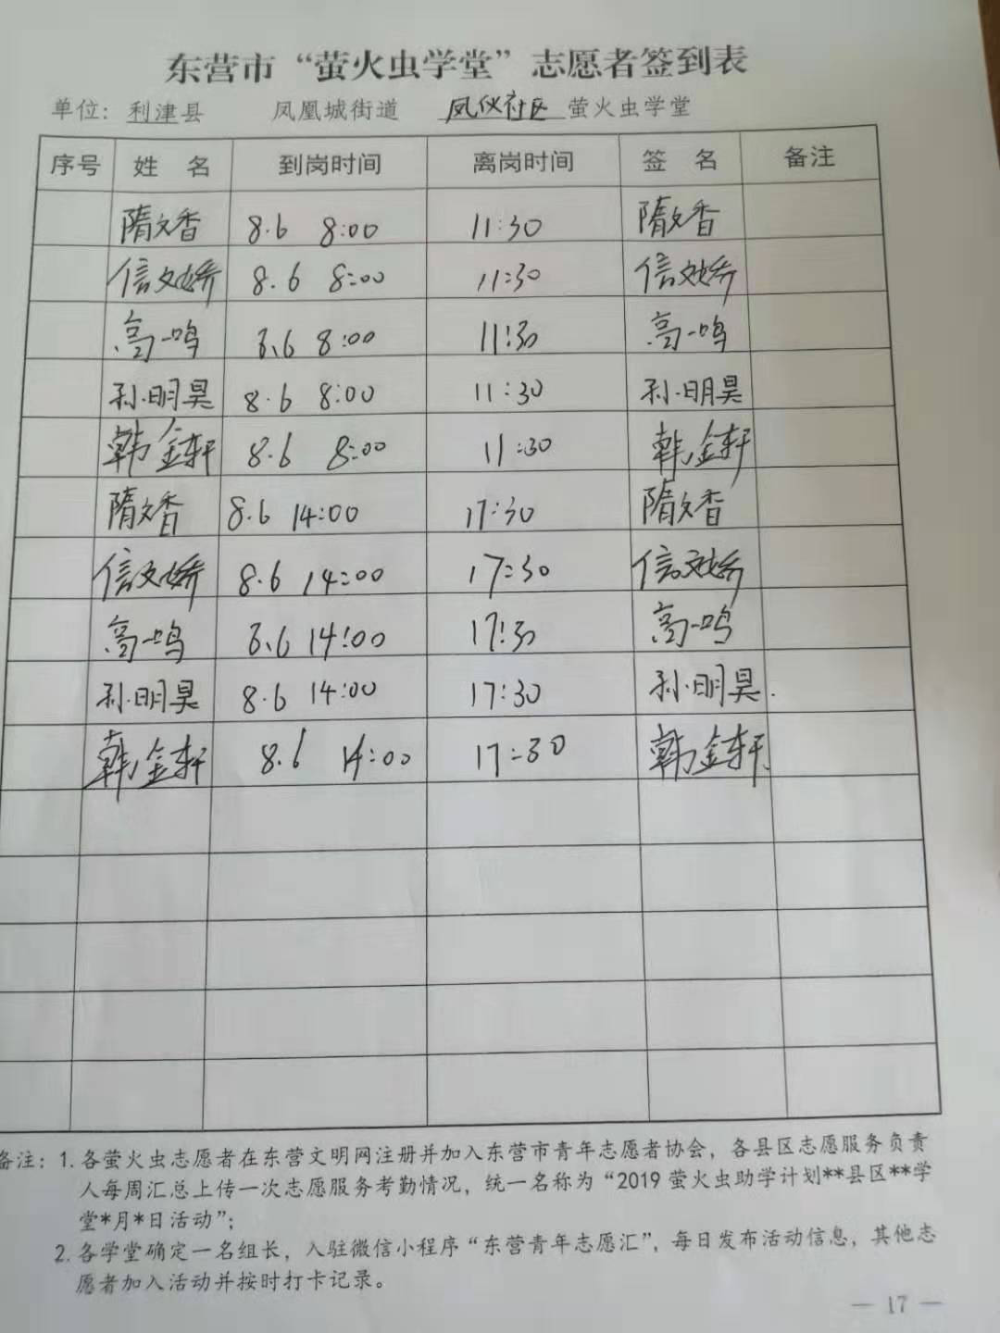 东营市“萤火虫学堂”志愿者签到表
单位：利津县 凤凰城街道 凤仪社区 萤火虫学堂
序号 姓 名 到岗时间 离岗时间 签 名 备注
隋文香 8.6 8:00 11:30 隋文香
信文娇 8.6 8:00 11:30 信文娇
高一鸣 8.6 8:00 11:30 高一鸣
孙明昊 8.6 8:00 11:30 孙明昊
韩金轩 8.6 8:00 11:30 韩金轩
隋文香 8.6 14:00 17:30 隋文香
信文娇 8.6 14:00 17:30 信文娇
高一鸣 8.6 14:00 17:30 高一鸣
孙明昊 8.6 14:00 17:30 孙明昊.
韩金轩 8.6 14:00 17:30 韩金轩.
备注：1. 各萤火虫志愿者在东营文明网注册并加入东营市青年志愿者协会，各县区志愿服务负责
人每周汇总上传一次志愿服务考勤情况，统一名称为“2019 萤火虫助学计划**县区**学
堂*月*日活动”；
2. 各学堂确定一名组长，入驻微信小程序“东营青年志愿汇”，每日发布活动信息，其他志
愿者加入活动并按时打卡记录。
— 17 —